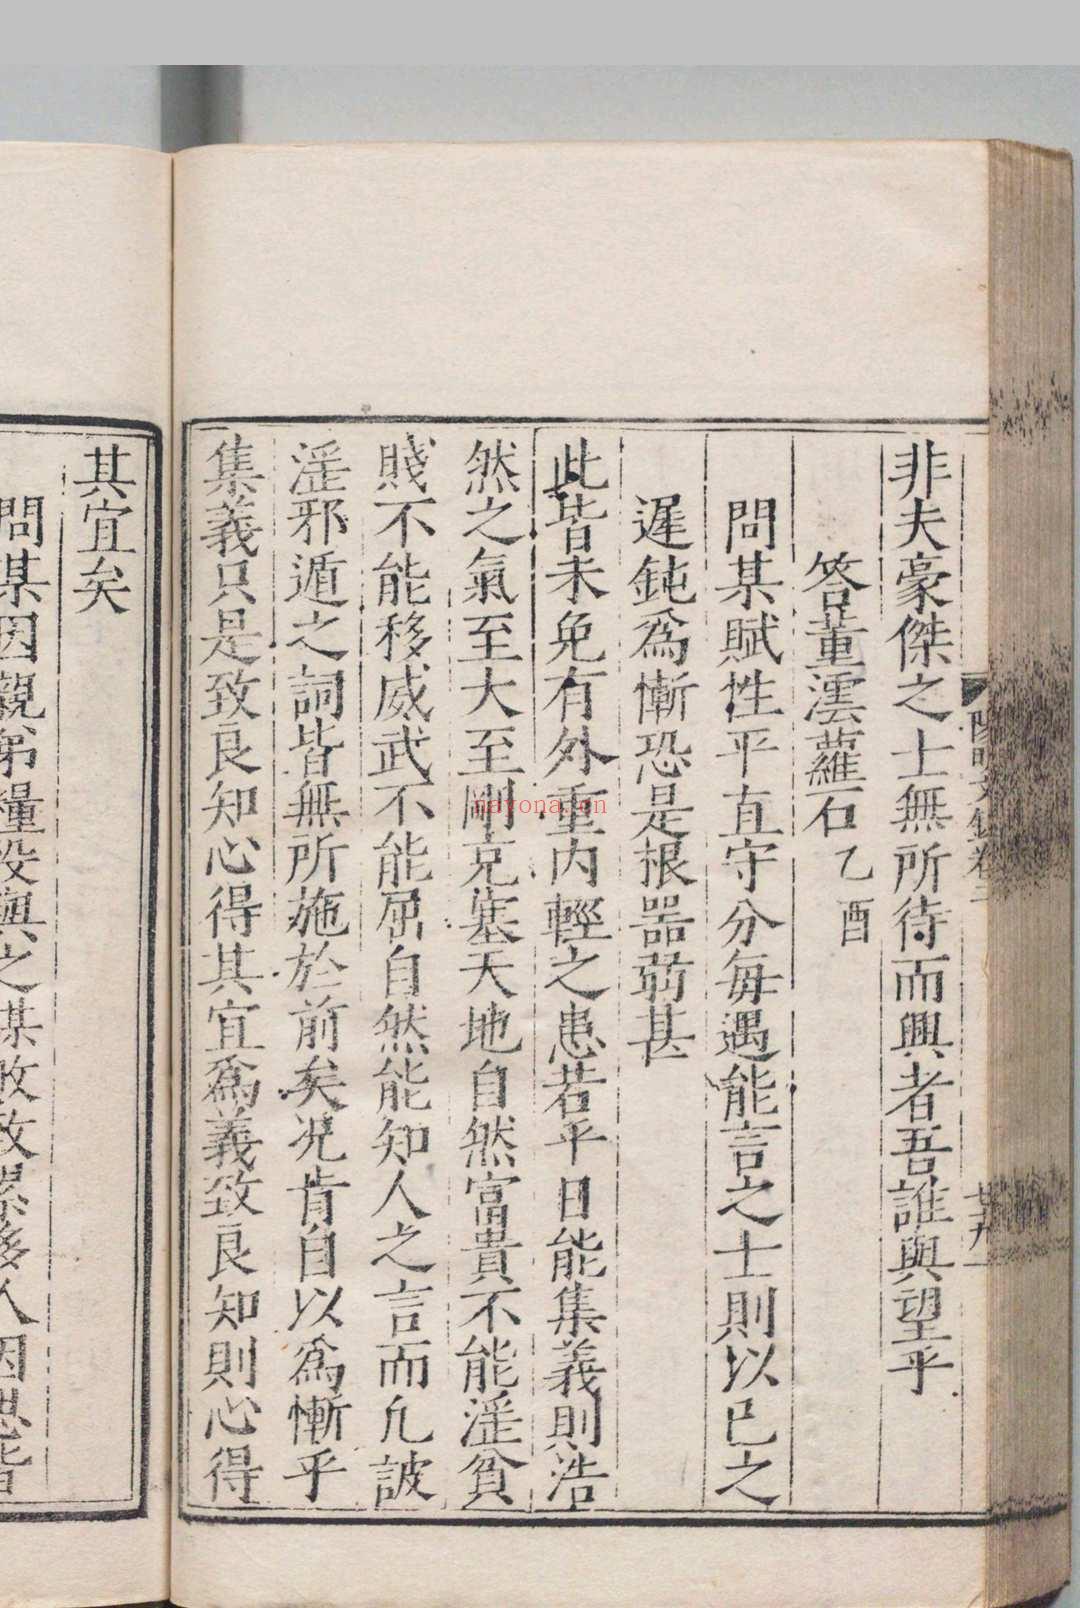 非夫豪傑之士無所待而興者吾誰與望乎
答董澐蘿石 乙酉
問某賦性平直守分每遇能言之士則以已之
遲鈍爲慚恐是根器弱甚
此皆未免有外重内輕之患若平日能集義則浩
然之氣至大至剛充塞天地自然富貴不能滛貧
賤不能移威武不能屈自然能知人之言而凡詖
滛邪遁之詞皆無所施於前矣况肯自以爲慚乎
集義只是致良知心得其宜爲義致良知則心得
其宜矣
問某因親弟糧役與之某敗致累多人因思皆
陽明文錄卷二
廿九
nayona.cn